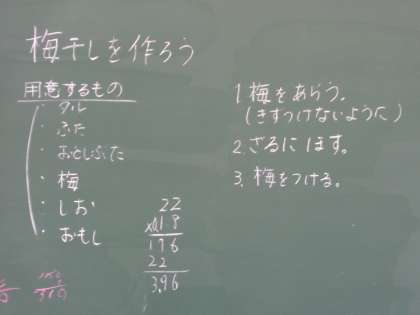 梅干しを作ろう
用意するもの
・タル
・ふた
・おとしぶた
・梅
・しお
・おもし
1.梅をあらう。
(きずつけないように)
2.ざるにほす。
3.梅をつける。
22
×0.18
176
22
3.96